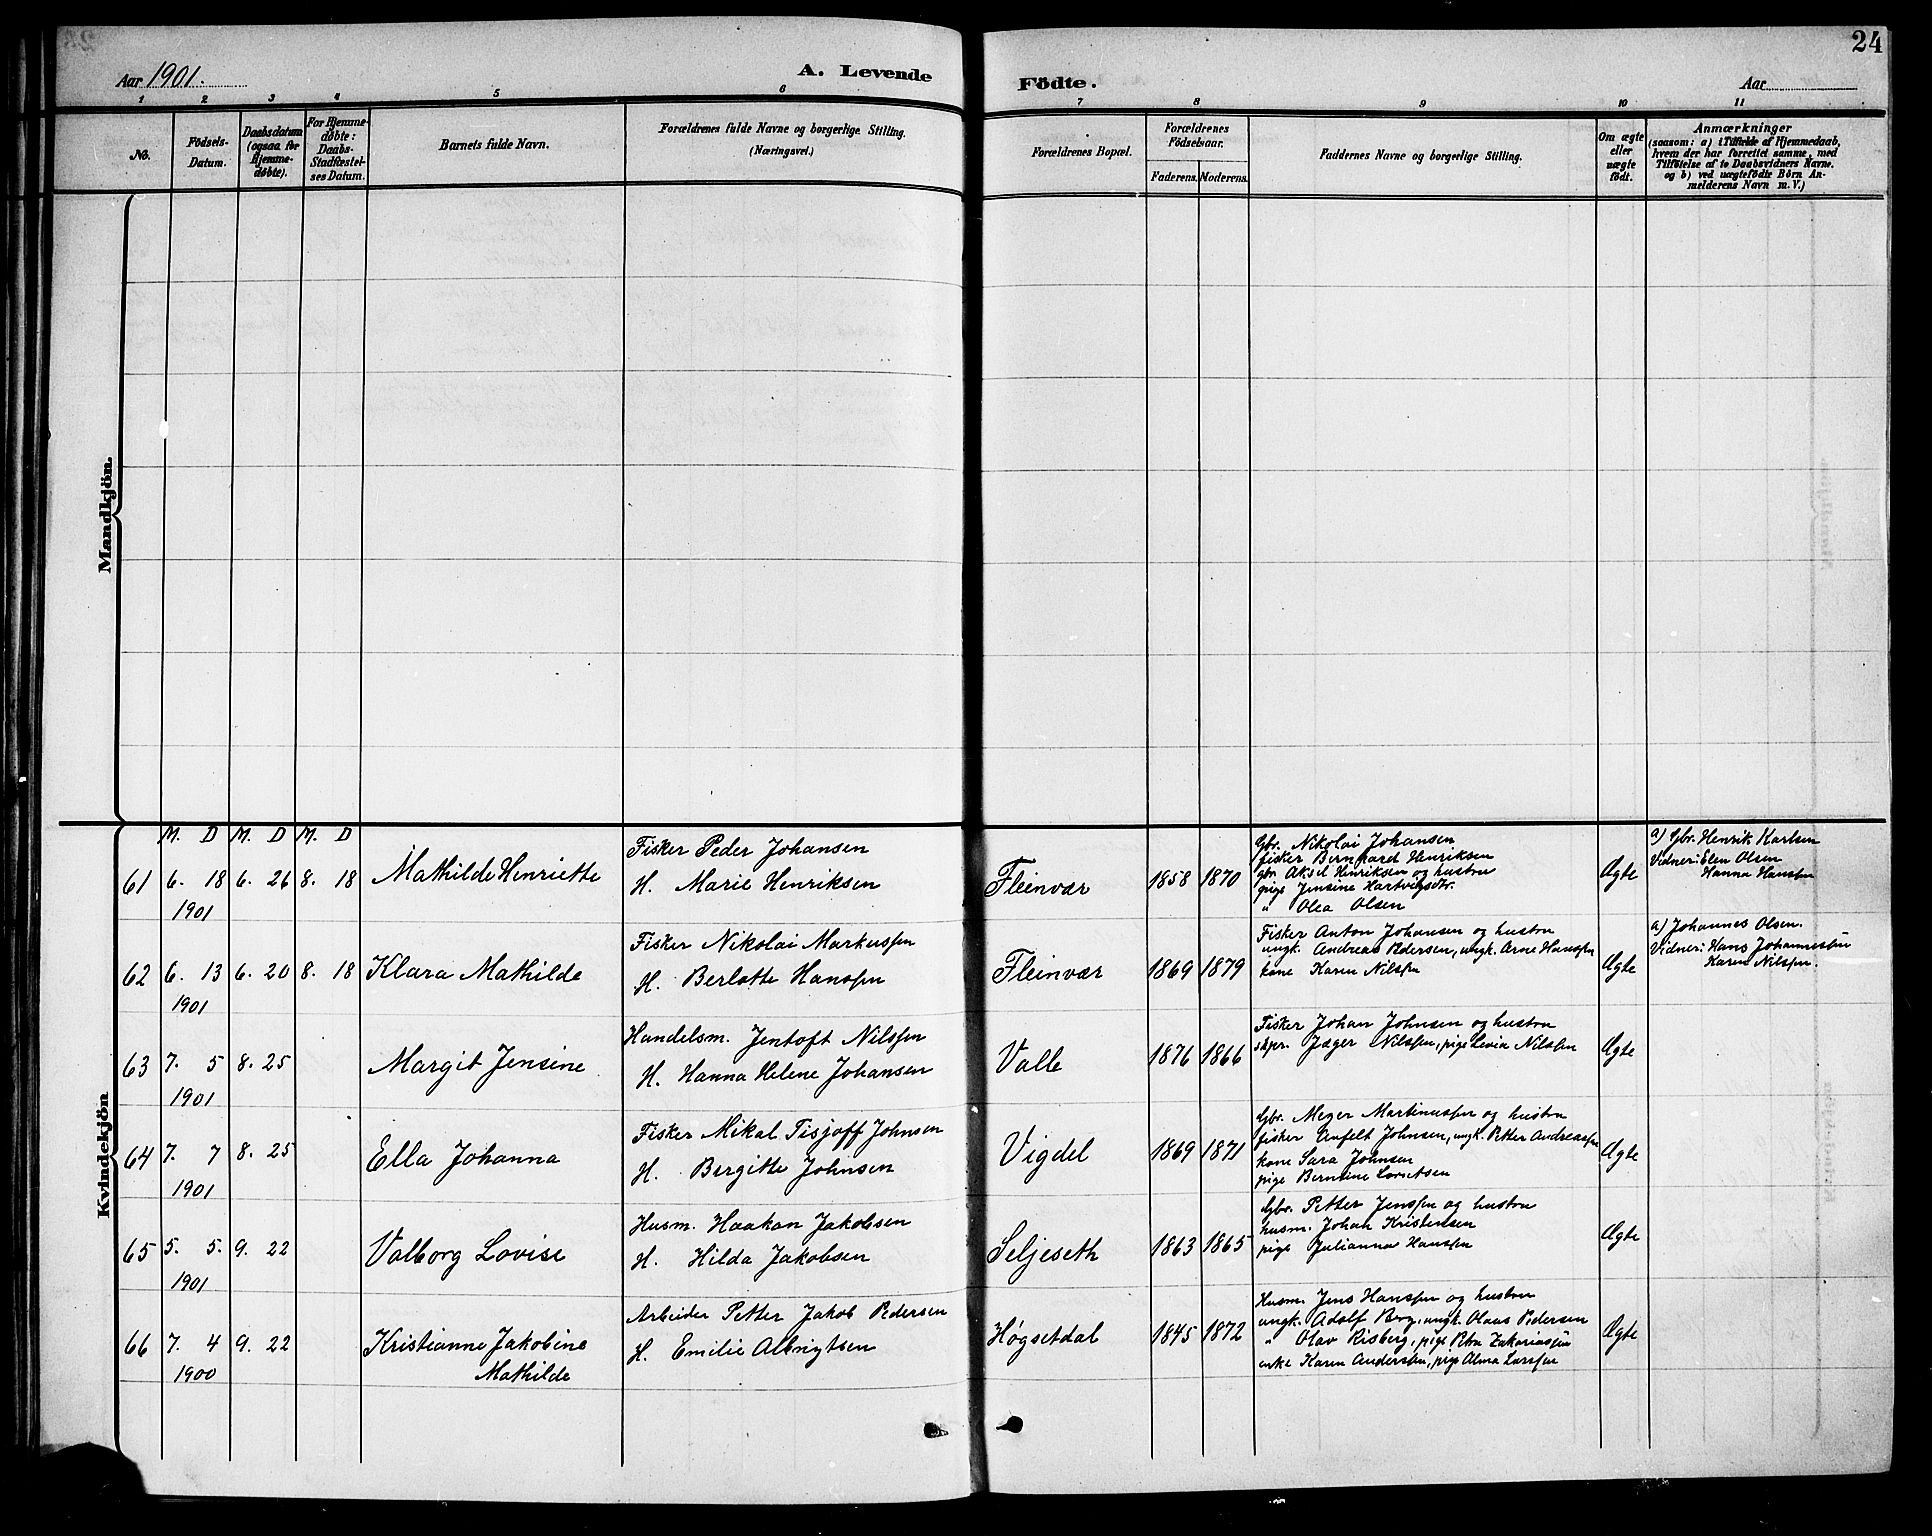 24
Aar 1901.
A. Levende
Födte.
Aar
1 2 3 4 5 6 7 8 9 10 11
No.
Födsels-
Datum.
Daabsdatum
(ogsaa for
Hjemme-
døbte).
For Hjemme-
døbte:
Daabs-
Stadfæstel-
ses Datum.
Barnets fulde Navn.
Forældrenes fulde Navne og borgerlige Stilling.
(Næringsvei.)
Forældrenes Bopæl.
Forældrenes
Fødselsaar.
Faderens. Moderens.
Faddernes Navne og borgerlige Stilling.
Om ægte
eller
uægte
født.
Anmærkninger
(saasom: a) i Tilfælde af Hjemmedaab,
hvem der har forrettet samme, med
Tilføielse af to Daabsvidners Navne.
og b) ved uægtefødte Börn An-
melderens Navn m. V.)
Mandkjön.
Kvindekjön
M. D M. D M. D
61 6. 18 6. 26 8. 18
1901
Mathilde Henriette
Fisker Peder Johansen
H. Marie Henriksen
Fleinvær
1858 1870
Gbr. Nikolai Johansen
fisker Bernhard Henriksen
gbr. Aksel Henriksen og hustru
pige Jensine Hartvigsdtr.
" Olea Olsen
Ægte
a) Gbr. Henrik Karlsen
Vidner: Elen Olsen
Hanna Hanssen
62 6. 13 6. 20 8. 18
1901
Klara Mathilde
Fisker Nikolai Markussen
H. Berlotte Hanssen
Fleinvær
1869 1879
Fisker Anton Johansen og hustru
ungk. Andreas Pedersen, ungk. Arne Hanssen
kone Karen Nilssen
Ægte
a) Johannes Olsen.
Vidner: Hans Johannessen
Karen Nilssen.
63 7. 5 8. 25
1901
Margit Jensine
Handelsm. Jentoft Nilssen
H. Hanna Helene Johansen
Valle
1876 1866
Fisker Johan Johnsen og hustru
skpr. Jæger Nilssen, pige Levia Nilssen
Ægte
64 7. 7 8. 25
1901
Ella Johanna
Fisker Mikal Tisjoff Johnsen
H. Bergitte Johnsen
Vigdel
1869 1871
Gbr. Meger Martinussen og hustru
fisker Anfelt Johnsen, ungk. Petter Andreassen
kone Sara Johnsen
pige Berntine
Ægte
65 5. 5. 9. 22
1901
Valborg Lovise
Husm. Haakan Jakobsen
H. Hilda Jakobsen
Seljeseth
1863 1865
Gbr. Petter Jenssen og hustru
husm. Johan Kristensen
pige Julianna Hanssen
Ægte
66 7. 4 9. 22
1900
Kristianne Jakobine
Mathilde
Arbeider Petter Jakob Pedersen
H. Emilie Albrigtsen
Høgsetdal
1845 1872
Husm. Jens Hanssen og hustru
ungk. Adolf Berg, ungk. Olaus Pedersen
" Olav Risberg, pige Petra Zakariassen
enke Karen Anderssen, pige Alma Larssen
Ægte